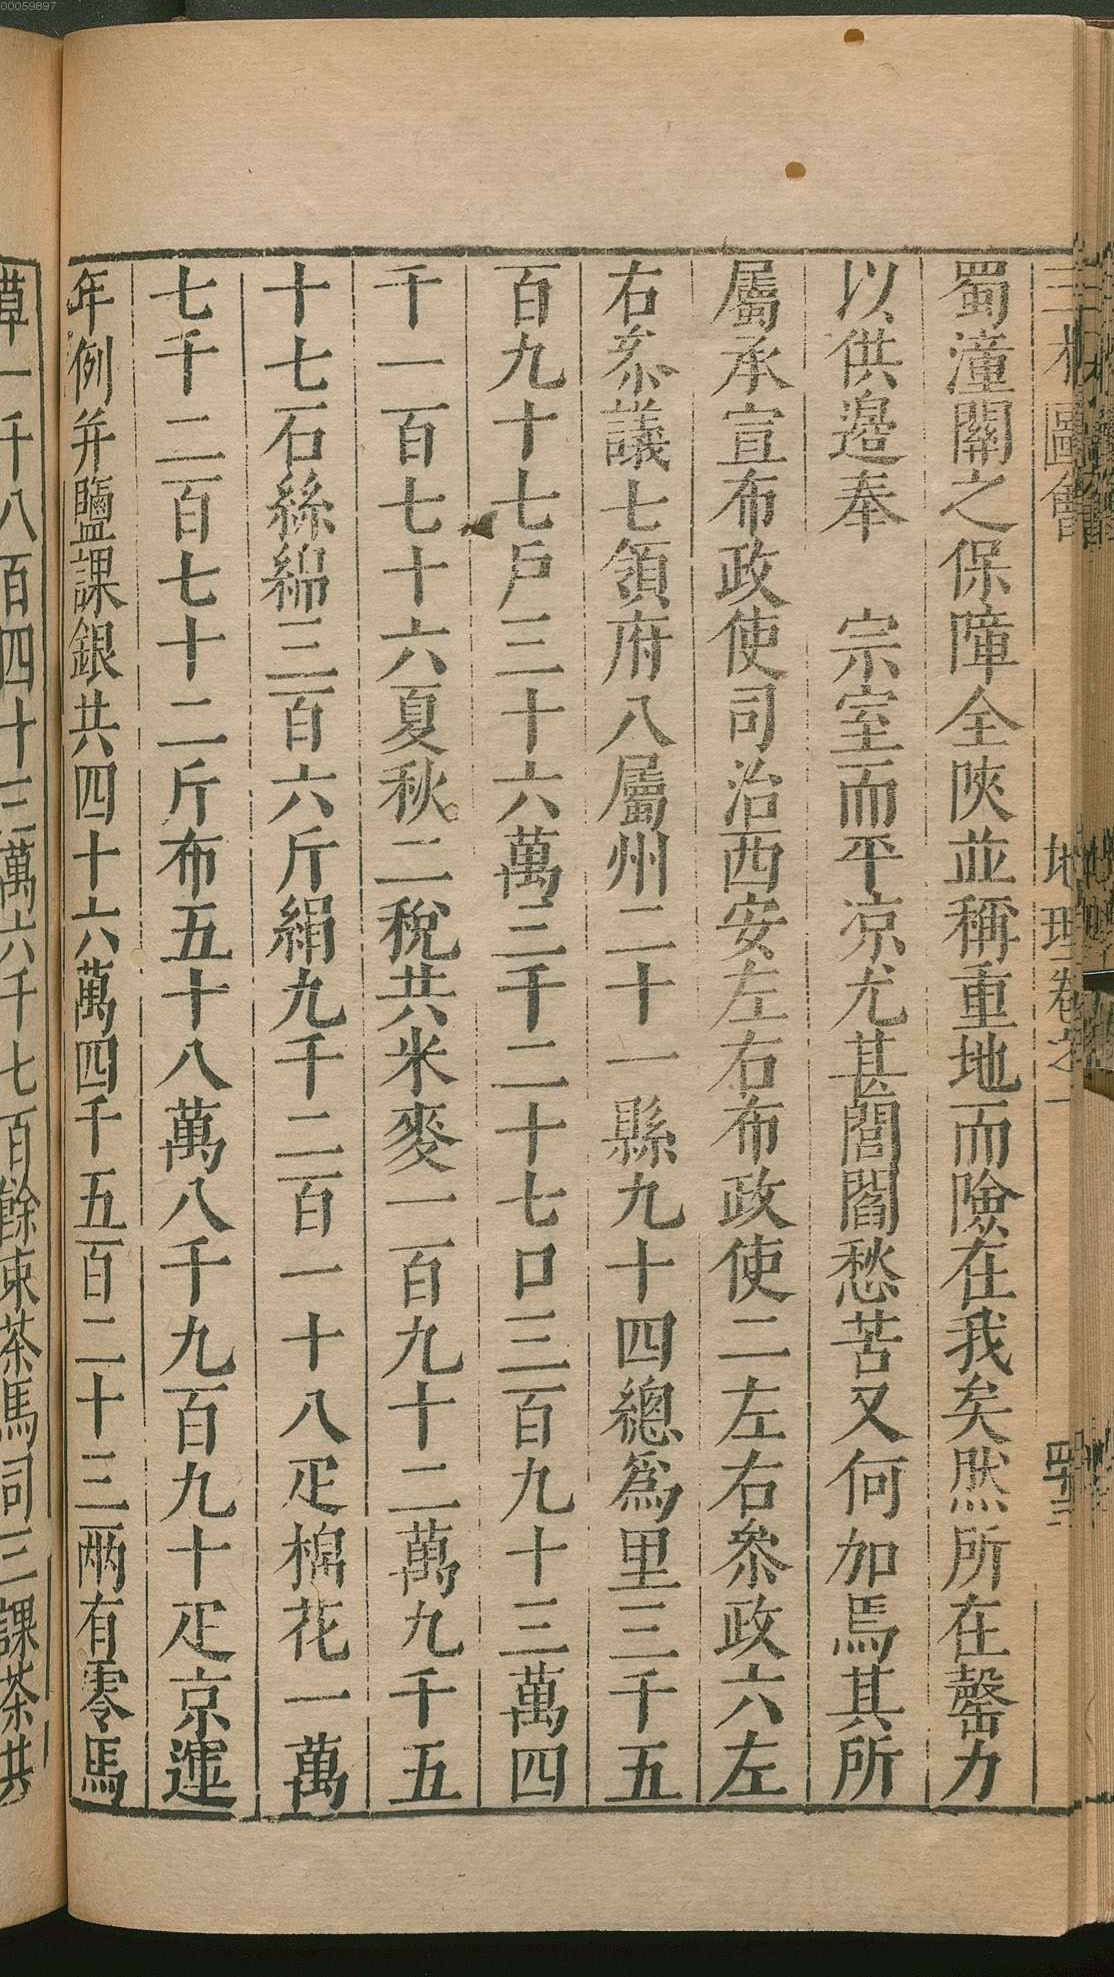 00059897
三才圖會 地理卷之一
蜀潼關之保障全陜並稱重地而險在我矣然所在罄力
以供邉奉 宗室而平凉尤甚閭閻愁苦又何加焉其所
屬承宣布政使司治西安左右布政使二左右叅政六左
右叅議七領府八屬州二十一縣九十四總爲里三千五
百九十七戶三十六萬三千二十七口三百九十三萬四
千一百七十六夏秋二稅共米麥一百九十二萬九千五
十七石絲綿三百六斤絹九千二百一十八疋棉花一萬
七千二百七十二斤布五十八萬八千九百九十疋京運
年例并鹽課銀共四十六萬四千五百二十三兩有零馬
草一千八百四十三萬六千七百餘束茶馬司三課茶共